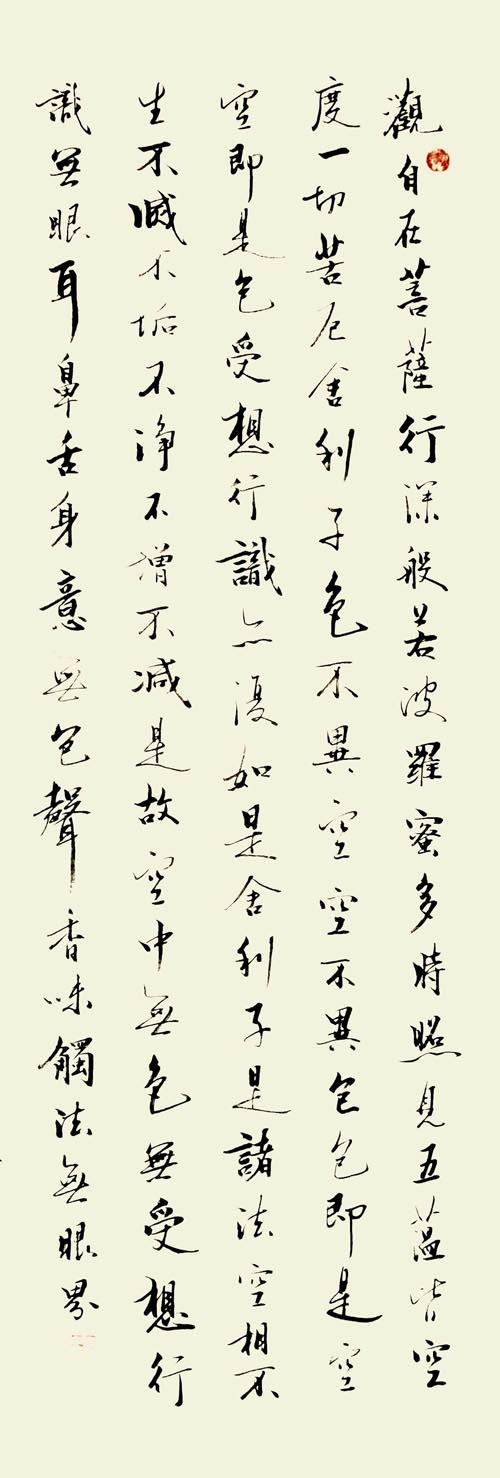 觀自在菩薩行深般若波羅蜜多時照見五蘊皆空
度一切苦厄舍利子色不異空空不異色色即是空
空即是色受想行識亦復如是舍利子是諸法空相不
生不滅不垢不淨不增不減是故空中無色無受想行
識無眼耳鼻舌身意無色聲香味觸法無眼界